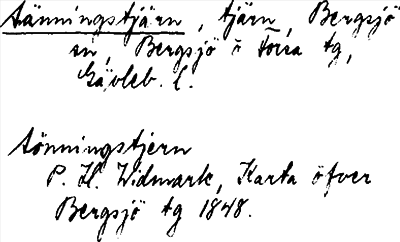 Tänningstjärn, tjärn, Bergsjö
sn, Bergsjö o Forsa tg,
Gävleb. l.
Tönningstjern
P. H. Widmark, Karta öfver
Bergsjö tg 1848.